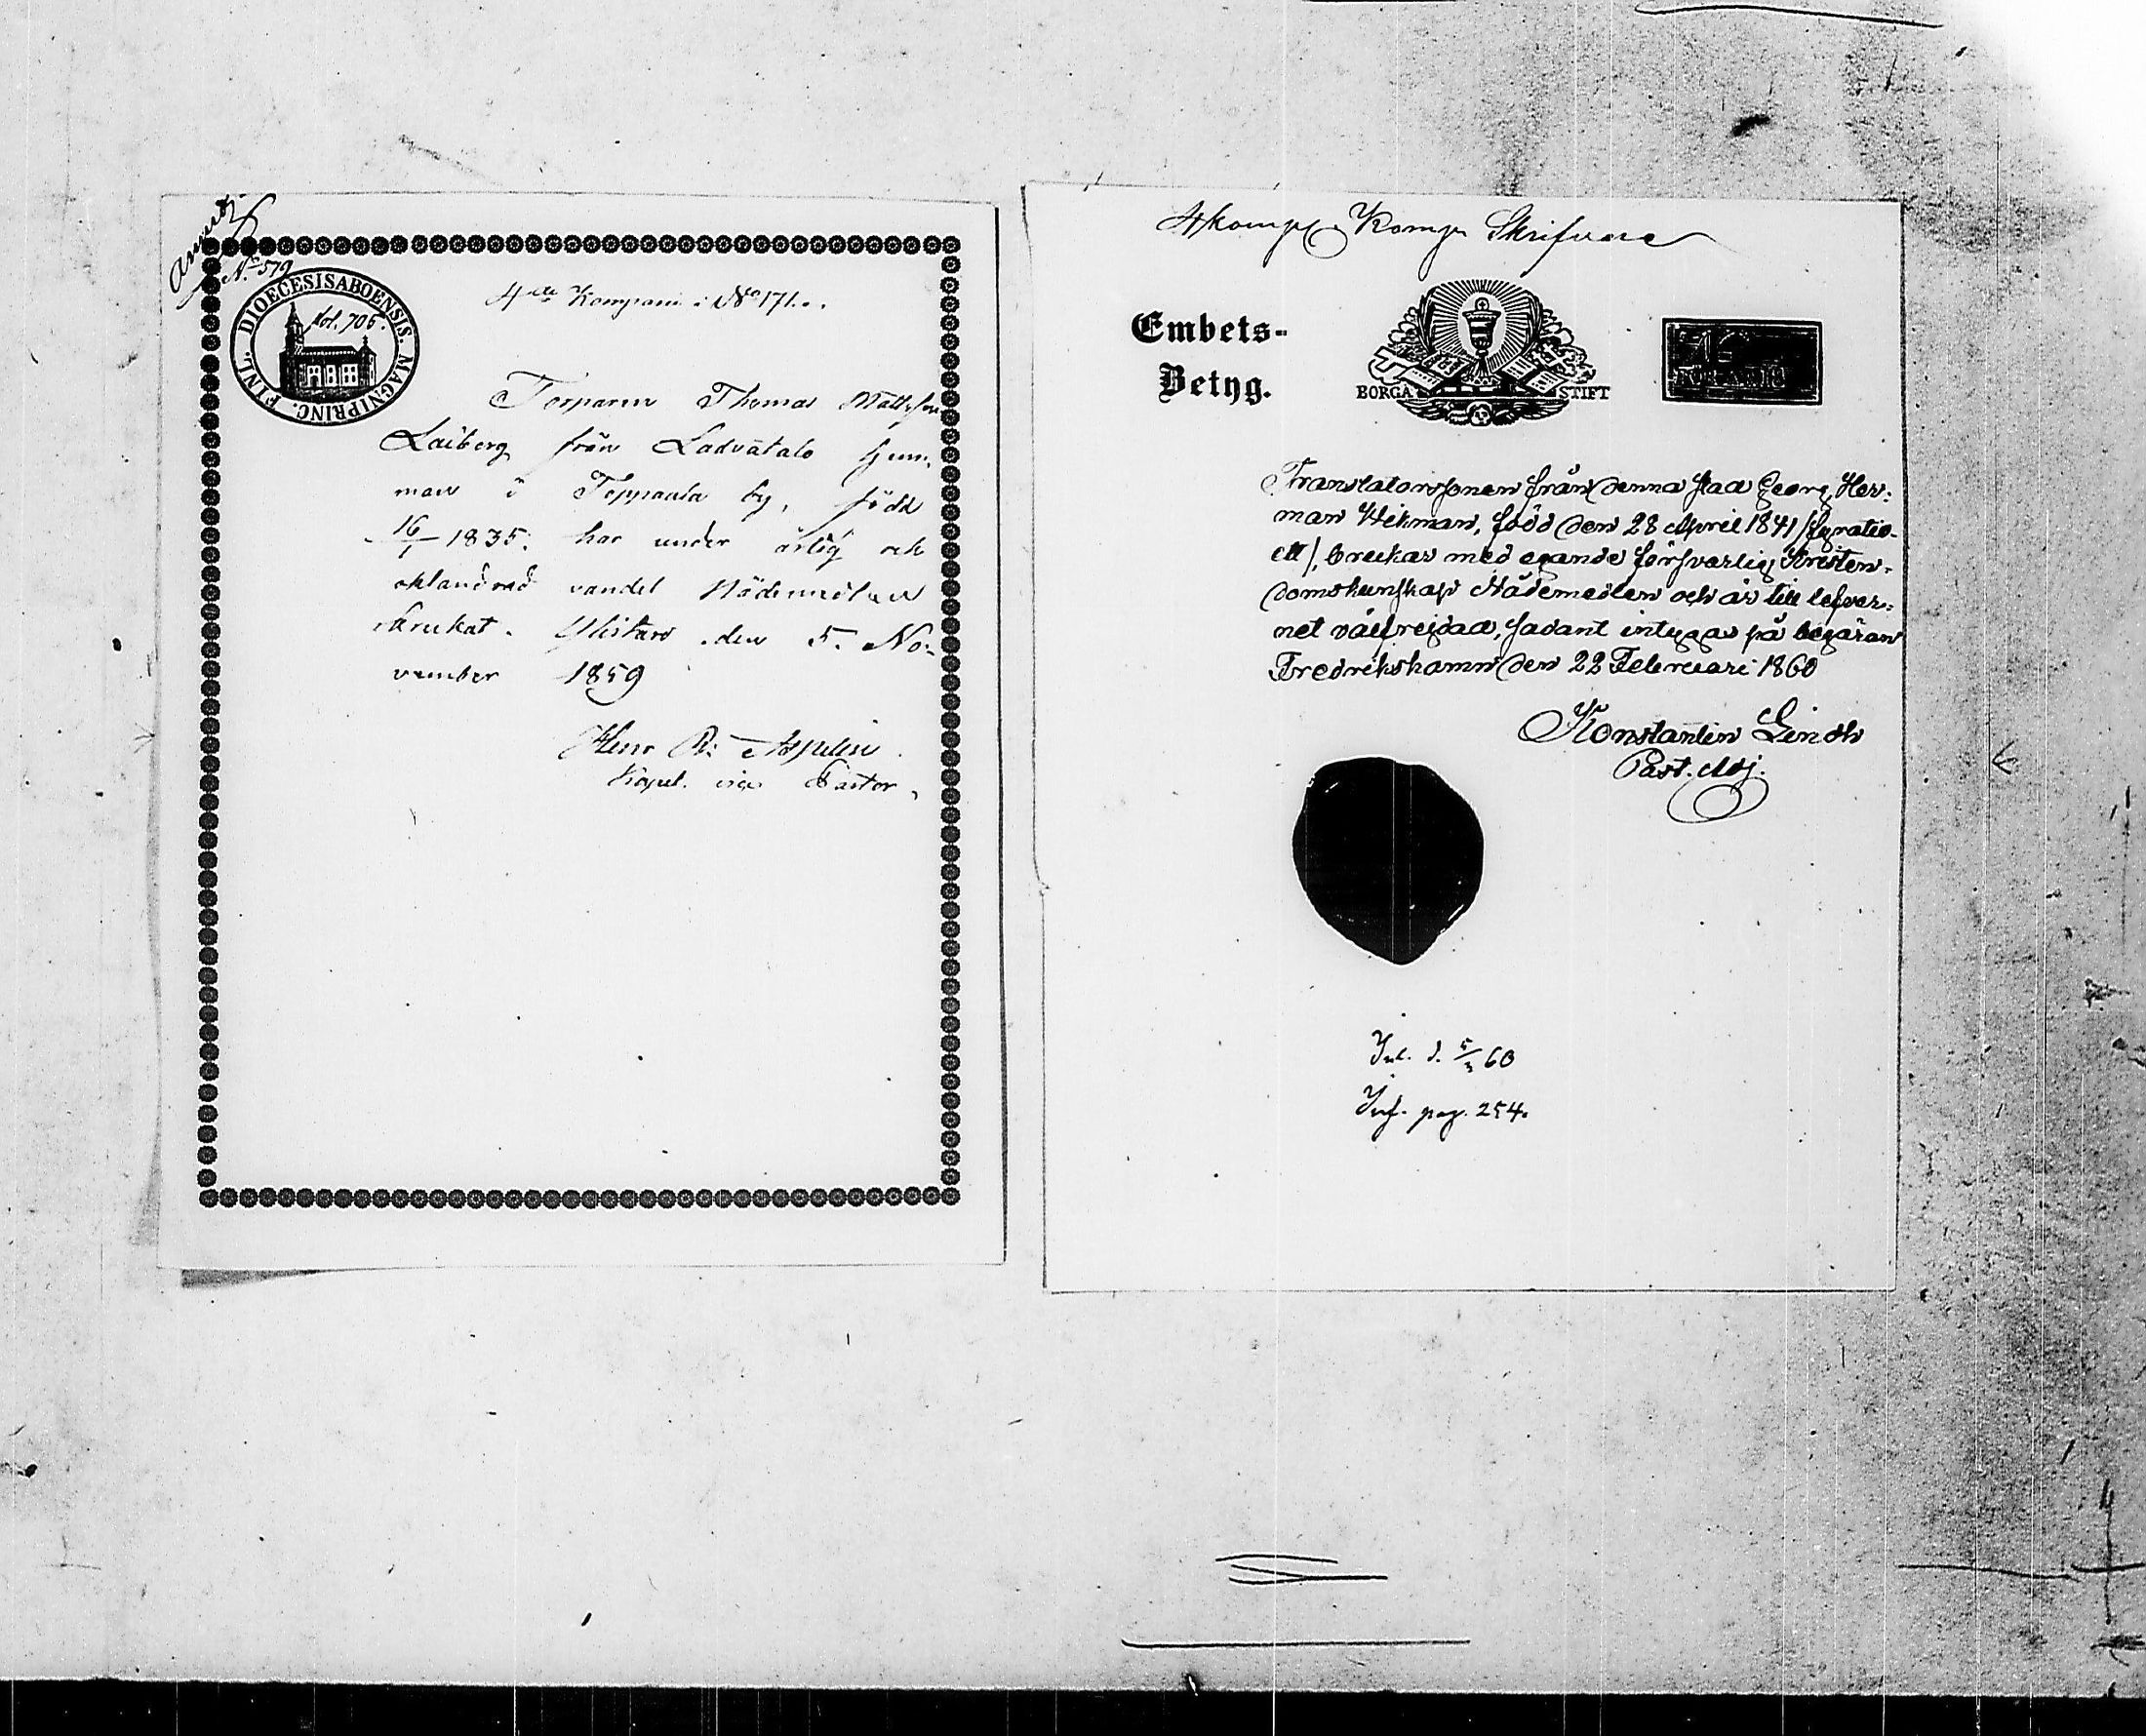 No 579
DIOECESIS ABOENSIS. MAGNI PRINC. FINL.
fol. 706.
4de Kompani: No 171.
Torparen Thomas Mattsson
Laiberg från Ladvatalo hem:
man i Teppaala by, född
16/1 1835, har under ärlig och
oklandrad vandel Nådemedlen
brukat. den 5. No:
vember 1859
Henr R: Aspelin.
Kapel. vice Pastor.
4 komp. Komp. Skrifvare
Embets-
Betyg.
BORGÅ STIFT
Translatorssonen från denna stad Georg Her:
man Wikman, född den 28 April 1841
ett/, bruckar med egande försvarlig Kristen:
domskunskap Nådemedlen och är till lefver:
net välfrejdad, sådant intygas på begäran
Fredrikshamn den 22 Februari 1860
Konstantin Lindh
Past. Adj.
Inl. d. 5/3 60
Inf. pag. 254.